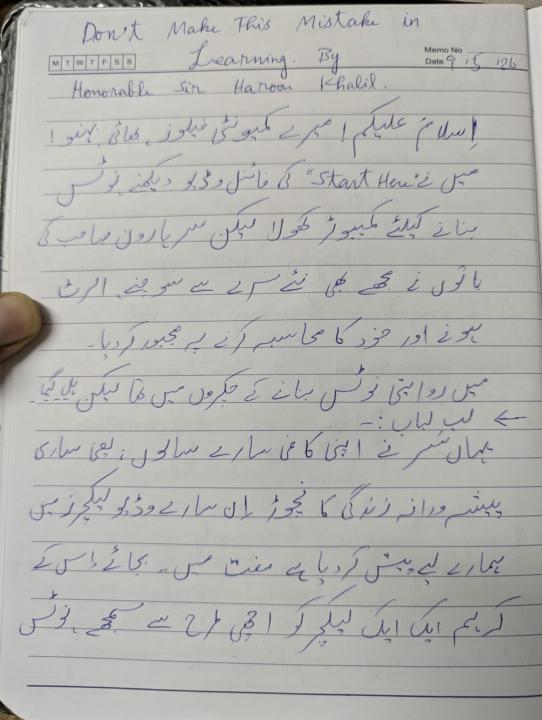 Don't Make This Mistake in
Learning. By
Memo No
M T W T F S S
Date 9 15 126
Honorable Sir Haroon Khalil.
اِسلامُ علیکم! میرے کمیونٹی فیلوز، بھائی بہنو!
میں نے "Start Here" کی فائنل وڈیو دیکھنے، نوٹس
بنانے کیلئے کمپیوٹر کھولا لیکن سر ہارون صاحب کی
باتوں نے مجھے بھی نئے سرے سے سوچنے، الرٹ
ہونے اور خود کا محاسبہ کرنے پہ مجبور کردیا۔
میں روایتی نوٹس بنانے کے چکروں میں تھا لیکن ہل گیا۔
← لب لباب :-
یہاں سر نے اپنی کافی سارے سالوں، یعنی ساری
پیشہ ورانہ زندگی کا نچوڑ اِن سارے وڈیو لیکچرز میں
ہمارے لیے پیش کردیا ہے مفت میں۔ بجائے اِس کے
کہ ہم ایک ایک لیکچر کو اچھی طرح سے سمجھے، نوٹس